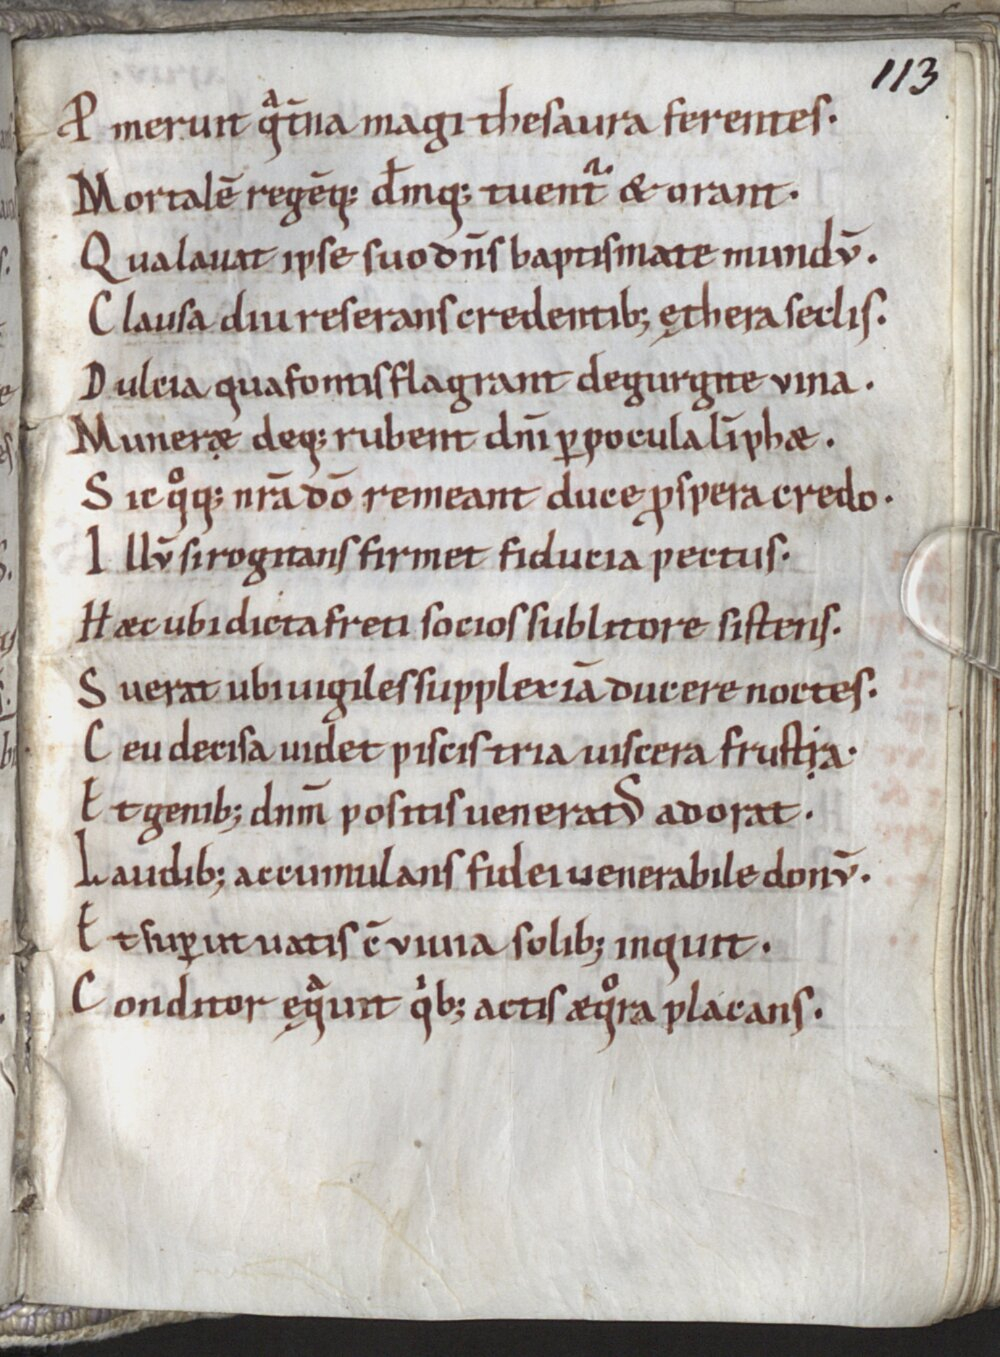 113
P merunt qᵃt̄na magi thesaura ferentes.
Mortalē regēq; dm̄q; tuentᷣ & orant.
Qua lauat ipse suo dn̄s baptismate mundū.
Clausa diu reserans credentib; ęthera seclis.
Dulcia qua fontis flagrant de gurgite vina.
Muneræ deq; rubent dn̄i ꝑ pocula lī phæ.
Sic qͦq; nr̄a dō remeant duce ꝓspera credo.
Illū si rogitans firmet fiducia pectus.
Hæc ubi dicta freti socios sub litore sistens.
Suerat ubi uigiles supplex iā ducere noctes.
Ceu decisa uidet piscis tria uiscera frustra.
Et genib; dnm̄ positis ueneratᷣ adorat.
Laudib; accumulans fidei uenerabile donū.
Et suꝑ ut uatis ē viuia solib; inquit.
Conditor ęqᵃuit qⁱb; actis æqͦra placans.